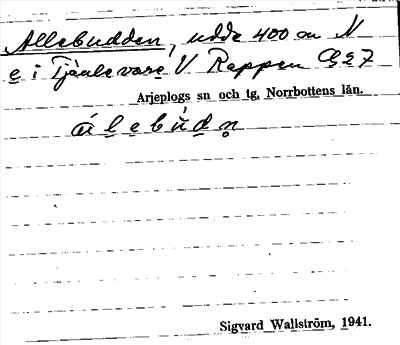 Allebudden, udde 400 m N
e i Tjåulevare V Rappen G27
Arjeplogs sn och tg, Norrbottens län.
álebùdn̥
Sigvard Wallström, 1941.